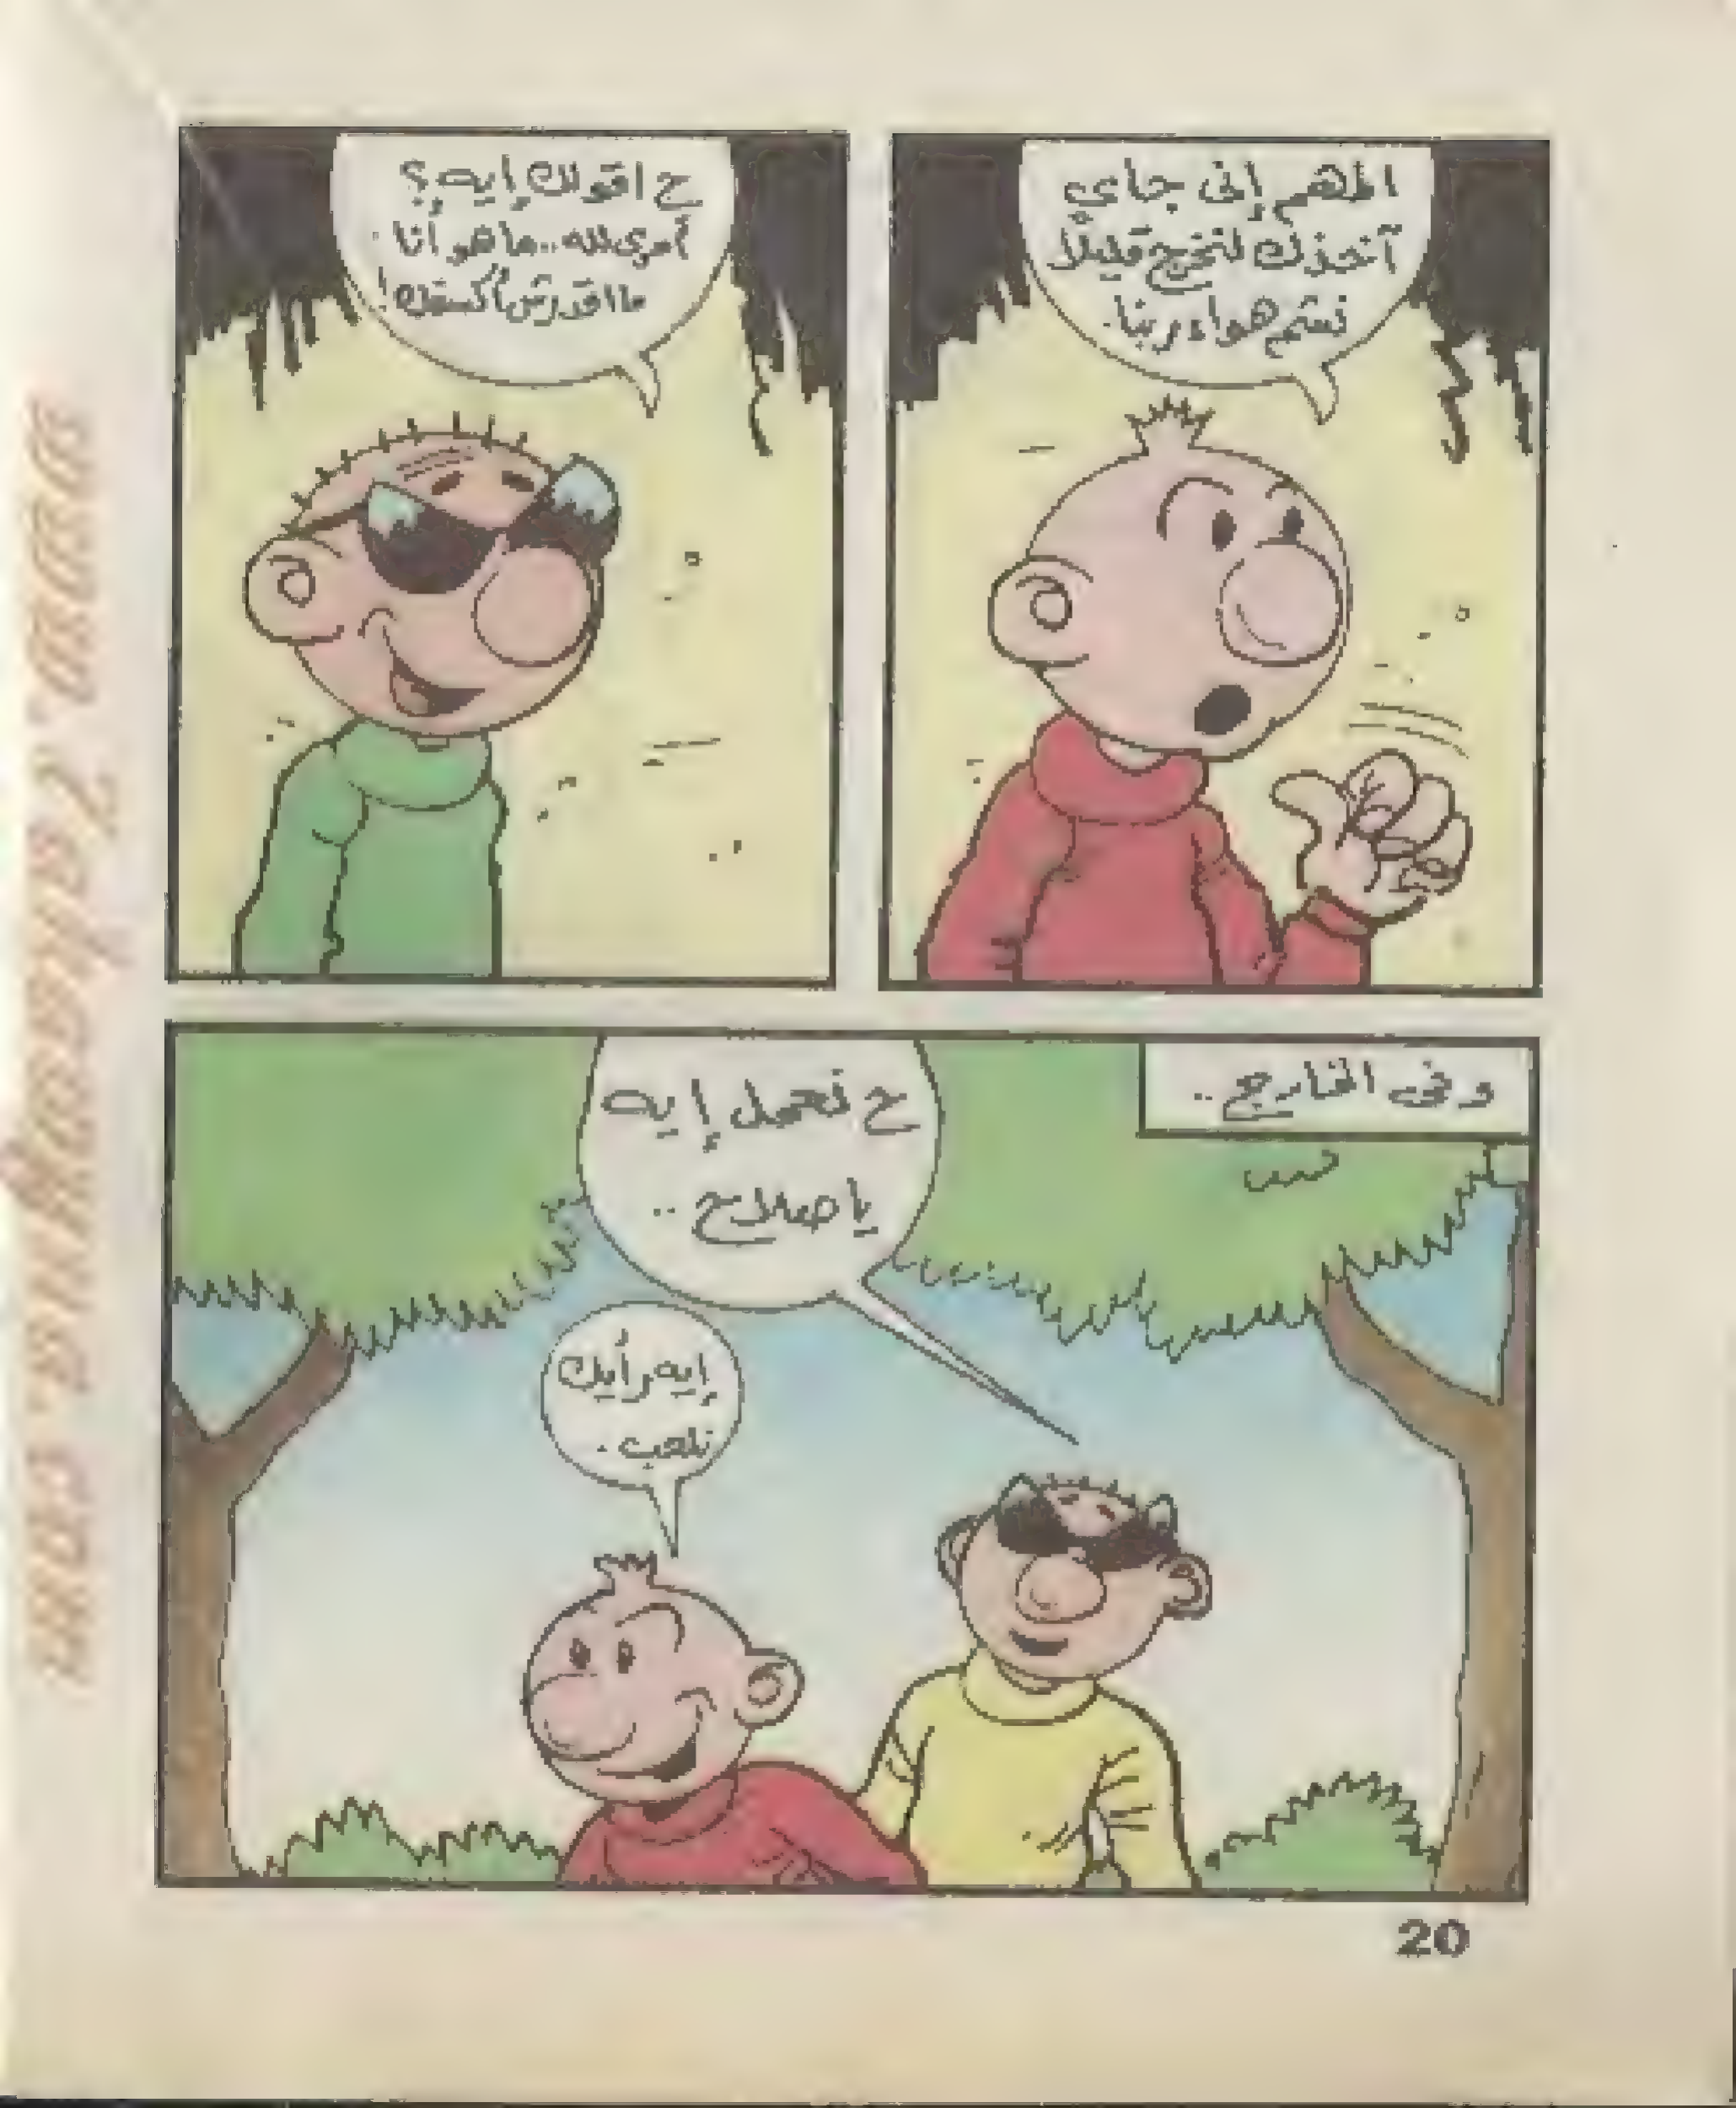 المهم إنى جاى
آخذك لنخرج قليلًا
نشم هواء ربنا.
ح اقولك إيه؟
أمرى لله.. ما هو أنا
ما اقدرش أكسفك!
وفى الخارج..
ح نعمل إيه
يا صلاح..
إيه رأيك
نلعب.
20